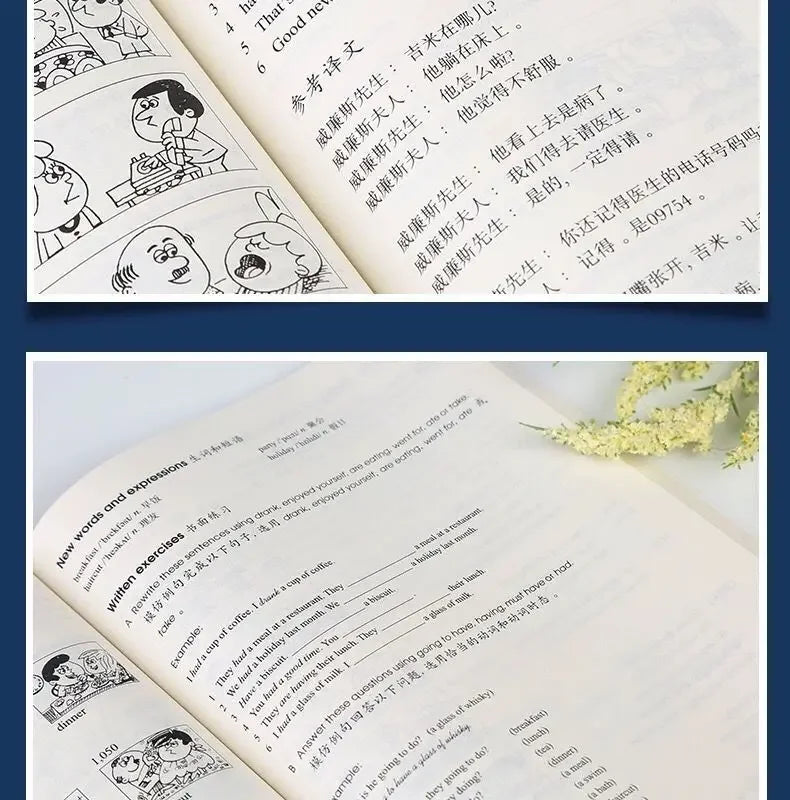 4 ha
5 That's
6 Good new
参考译文
威廉斯先生：吉米在哪儿？
威廉斯夫人：他躺在床上。
威廉斯先生：他怎么啦？
威廉斯夫人：他觉得不舒服。
威廉斯先生：他看上去是病了。
威廉斯夫人：我们得去请医生。
威廉斯先生：是的，一定得请。
威廉斯先生：你还记得医生的电话号码吗
人：记得。是09754。
嘴张开，吉米。让
病
New words and expressions 生词和短语
breakfast /'brekfəst/ n. 早饭
haircut /'heəkʌt/ n. 理发
party /'pɑ:ti/ n. 聚会
holiday /'hɒlədi/ n. 假日
Written exercises 书面练习
A Rewrite these sentences using drank, enjoyed yourself, are eating, went for, ate or take.
模仿例句完成以下句子，选用 drank, enjoyed yourself, are eating, went for, ate 或
take。
Example:
I had a cup of coffee. I drank a cup of coffee.
1 They had a meal at a restaurant. They ______ a meal at a restaurant.
2 We had a holiday last month. We ______ a holiday last month.
3 Have a biscuit. ______ a biscuit.
4 You had a good time. You ______.
5 They are having their lunch. They ______ their lunch.
6 I had a glass of milk. I ______ a glass of milk.
B Answer these questions using going to have, having, must have or had.
模仿例句回答以下问题，选用恰当的动词和动词时态。
xample:
is he going to do? (a glass of whisky)
to have a glass of whisky.
they going to do? (breakfast)
doing? (lunch)
(tea)
(dinner)
(a meal)
(a swim)
(a bath)
haircut)
dinner
1,050